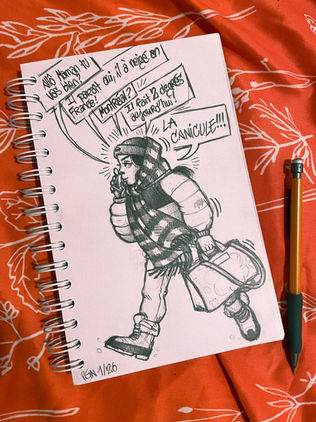 Allô Maman tu
vas bien.
Il paraît qu'il a neigé en
France!
Montréal?
Il fait 2 degrés
aujourd'hui!
LA
CANICULE!!!
PGN 1/26